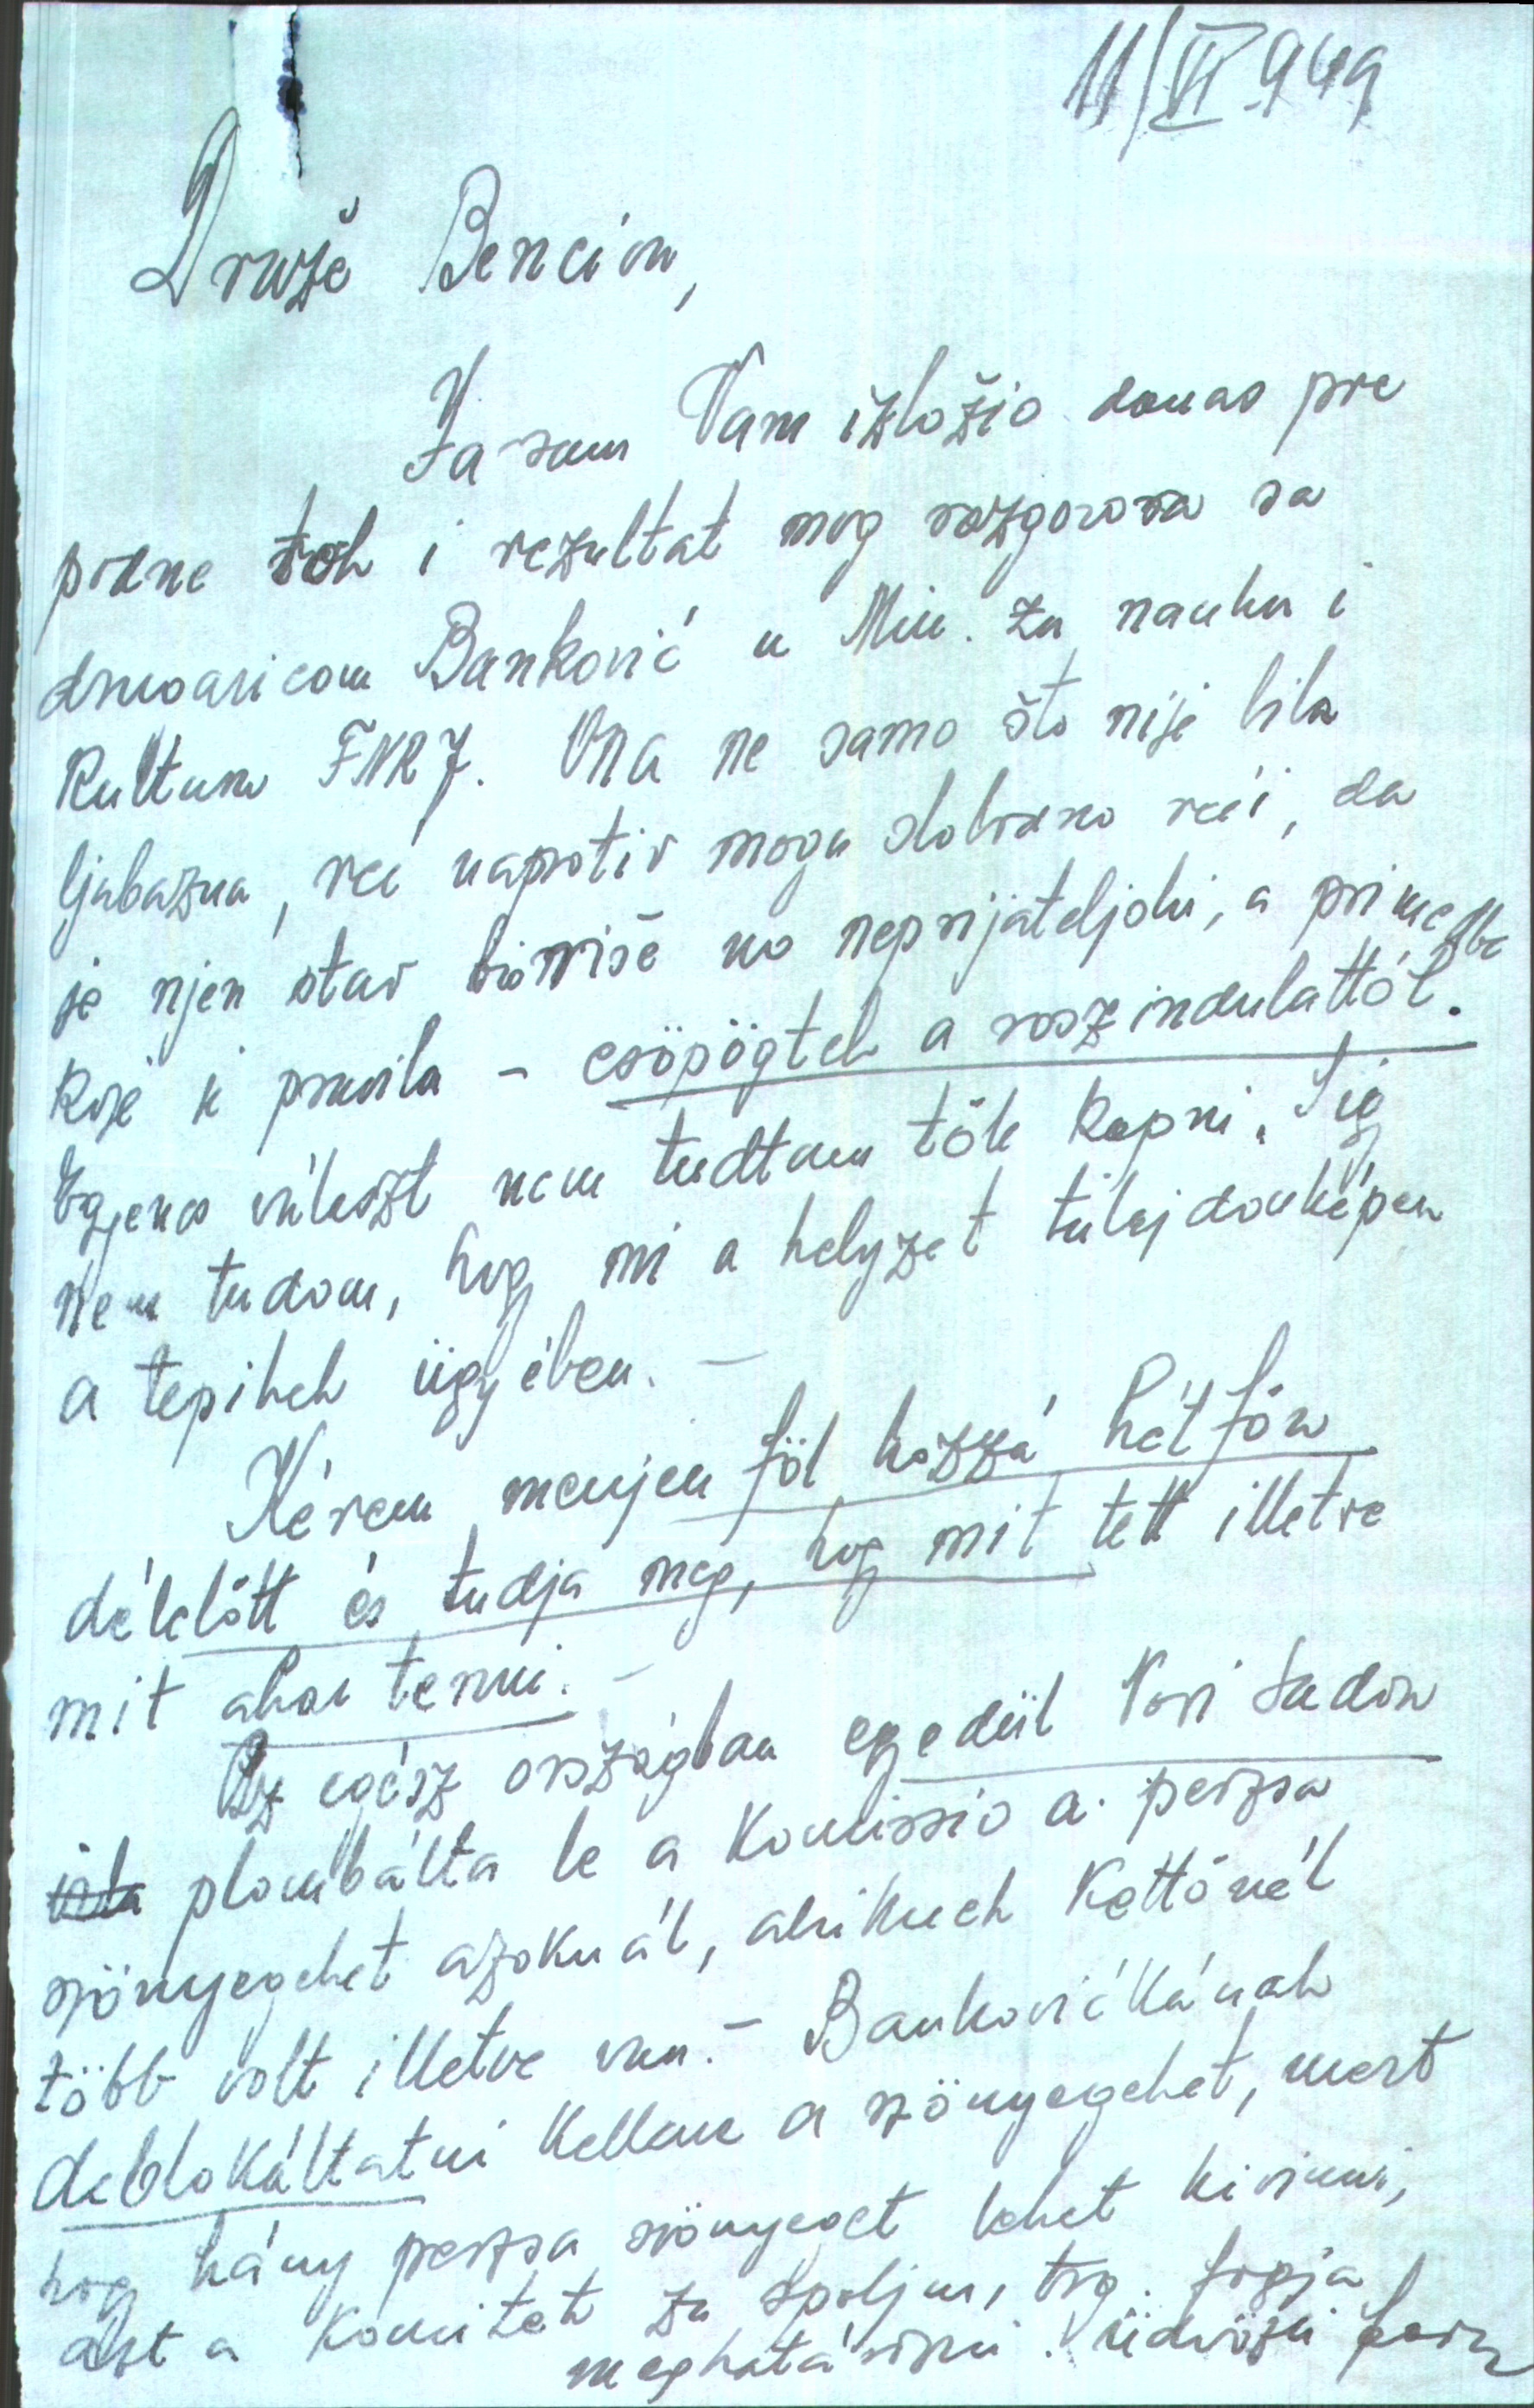 11/VI 949
Druže Bencion,
Ja sam Vam izložio danas pre
podne tok i rezultat mog razgovora sa
drugaricom Banković u Min. za nauku i
Kulturu FNRJ. Ona ne samo što nije bila
ljubazna, već naprotiv mogu slobodno reći, da
je njen stav bio više no neprijateljski, a primedbe
koje je pravila - csöpögtek a rosszindulattól.
Egyenes választ nem tudtam tőle kapni. Így
nem tudom, hogy mi a helyzet tulajdonképen
a tepihek ügyében. -
Kérem menjen föl hozzá hétfőn
délelőtt és tudja meg, hogy mit tett illetve
mit akar tenni. -
Az egész országban egyedül Novi Sadon
plombálta le a Komissio a perzsa
szönyegeket azoknál, akiknek Kettőnél
több volt illetve van. - Bankovićkának
deblokáltatni Kellene a szönyegeket, mert
hogy hány perzsa szönyeget lehet kivinni,
azt a Komitet za spoljnu trg. fogja
meghatározni. üdvözli